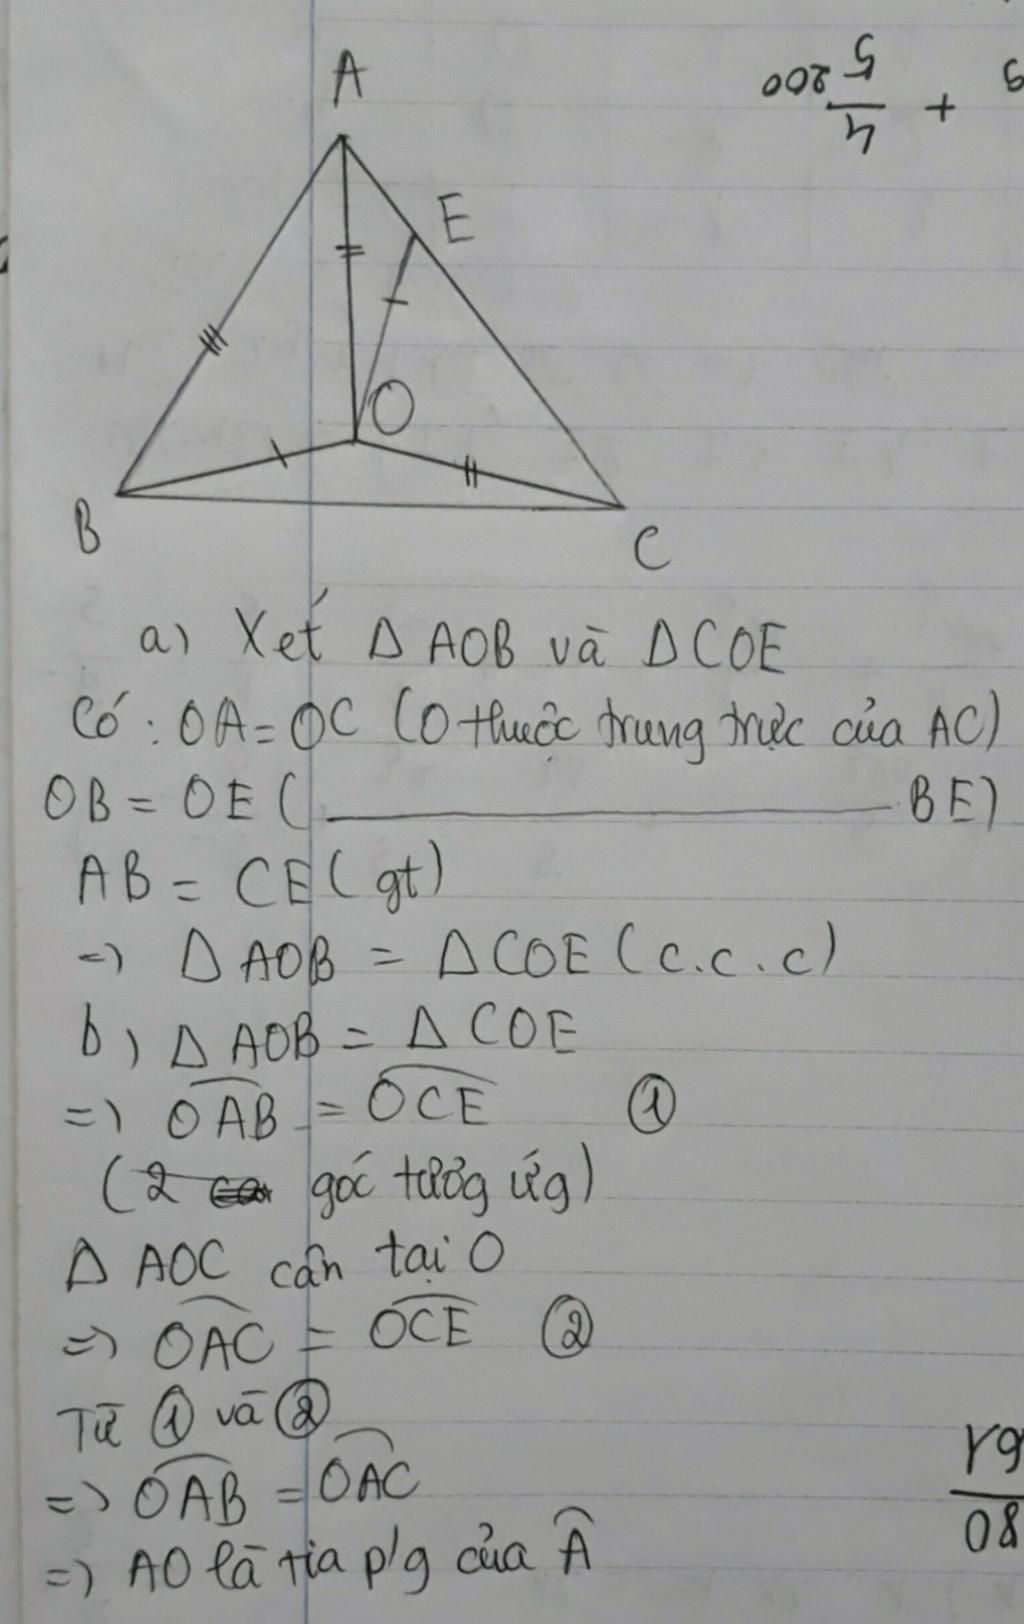 A
E
O
B
C
4/5 200 +
a) Xét Δ AOB và Δ COE
Có: OA = OC (O thuộc trung trực của AC)
OB = OE ( ———————— BE)
AB = CE (gt)
=> Δ AOB = Δ COE (c.c.c)
b) Δ AOB = Δ COE
=> OAB = OCE ①
(2 góc tương ứg)
Δ AOC cân tại O
=> OAC = OCE ②
Từ ① và ②
=> OAB = OAC
=> AO là tia p/g của A
80